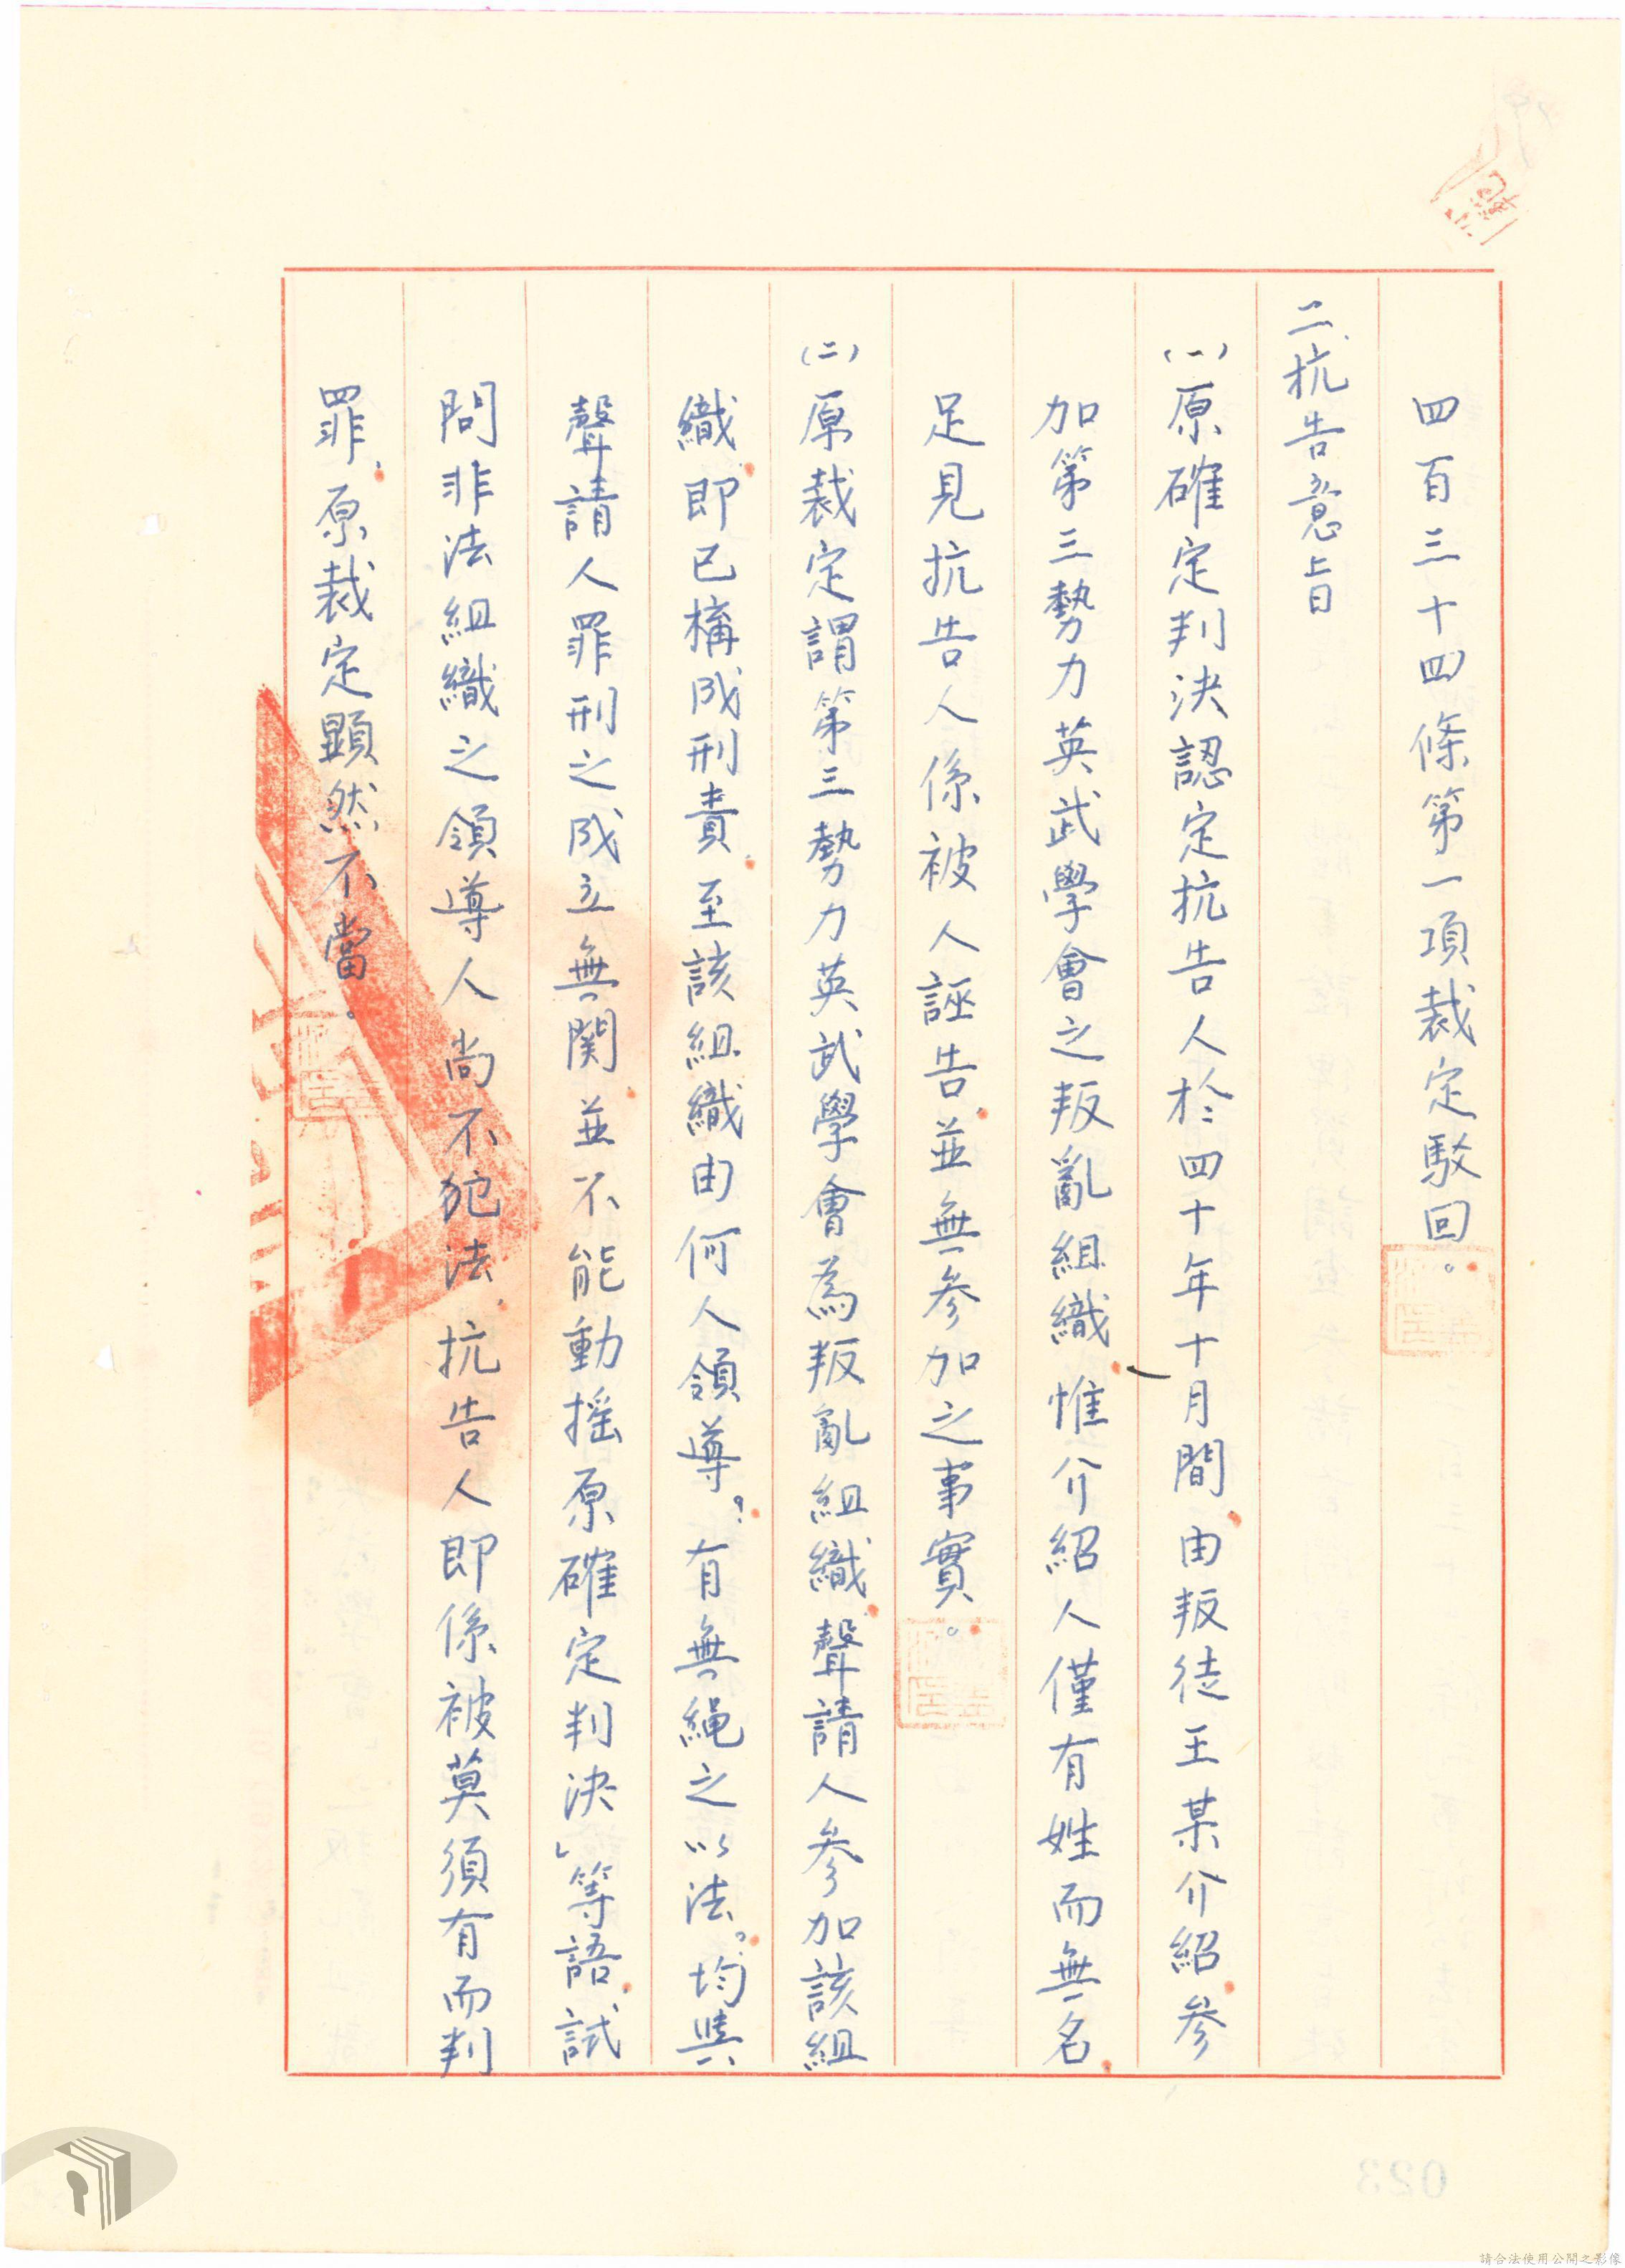 四百三十四條第一項裁定駁回。
二、抗告意旨
(一)原確定判決認定抗告人於四十年十月間、由叛徒王某介紹、參
加第三勢力英武學會之叛亂組織、惟介紹人僅有姓而無名、
足見抗告人係被人誣告、並無參加之事實。
(二)原裁定謂第三勢力英武學會為叛亂組織、聲請人參加該組
織、即已構成刑責、至該組織由何人領導？有無繩之以法？均與
聲請人罪刑之成立無関、並不能動搖原確定判決」等語、試
問非法組織之領導人尚不犯法、抗告人即係被莫須有而判
罪、原裁定顕然不當。
023
請合法使用公開之影像